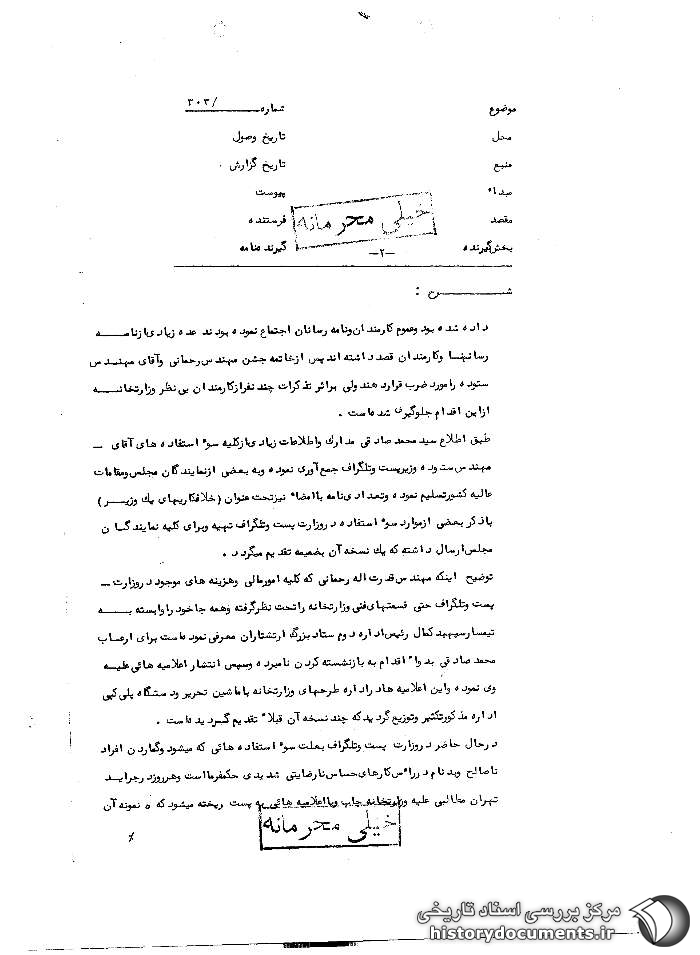 موضوع
شماره /۳۰۳
محل
تاریخ وصول
منبع
تاریخ گزارش
مبداء
پیوست
مقصد
فرستنده
بخش گیرنده
گیرنده نامه
خیلی محرمانه
-۲-
شرح :
داده شده بود وعموم کارمندان ونامه رسانان اجتماع نموده بودند عده زیادی از نامه
رسانها وکارمندان قصد داشته اند پس ازخاتمه جشن مهندس رحمانی وآقای مهندس
ستوده رامورد ضرب قرار دهند ولی براثر تذکرات چند نفرازکارمندان بی نظر وزارتخانه
ازاین اقدام جلوگیری شده است .
طبق اطلاع سید محمد صادقی مدارک واطلاعات زیادی ازکلیه سوء استفاده های آقای
مهندس ستوده وزیرپست وتلگراف جمع آوری نموده وبه بعضی ازنمایندگان مجلس ومقامات
عالیه کشورتسلیم نموده وتعدادی نامه باامضاء نیزتحت عنوان (خلافکاریهای یک وزیر)
باذکر بعضی ازموارد سوء استفاده در وزارت پست وتلگراف تهیه وبرای کلیه نمایندگان
مجلس ارسال داشته که یک نسخه آن بضمیمه تقدیم میگردد .
توضیح اینکه مهندس قدرت اله رحمانی که کلیه امورمالی وهزینه های موجود در وزارت
پست وتلگراف حتی قسمتهای فنی وزارتخانه راتحت نظرگرفته وهمه جاخود را وابسته به
تیمسارسپهبد کمال رئیس اداره دوم ستاد بزرگ ارتشتاران معرفی نموده است برای ارعاب
محمد صادقی بدواً اقدام به بازنشسته کردن نامبرده وسپس انتشار اعلامیه هائی علیه
وی نموده واین اعلامیه هادر اداره طرحهای وزارتخانه باماشین تحریر ودستگاه پلی کپی
اداره مذکورتکثیر وتوزیع گردیدکه چند نسخه آن قبلاً تقدیم گردیده است .
درحال حاضر در وزارت پست وتلگراف بعلت سوء استفاده هائی که میشود وگماردن افراد
ناصالح وبدنام در رأس کارهای حساس نارضایتی شدیدی حکمفرمااست وهرروز درجراید
تهران مطالبی علیه وزارتخانه چاپ ویااعلامیه هائی به پست ریخته میشود که ه نمونه آن
خیلی محرمانه
٪
مرکز بررسی اسناد تاریخی
historydocuments.ir